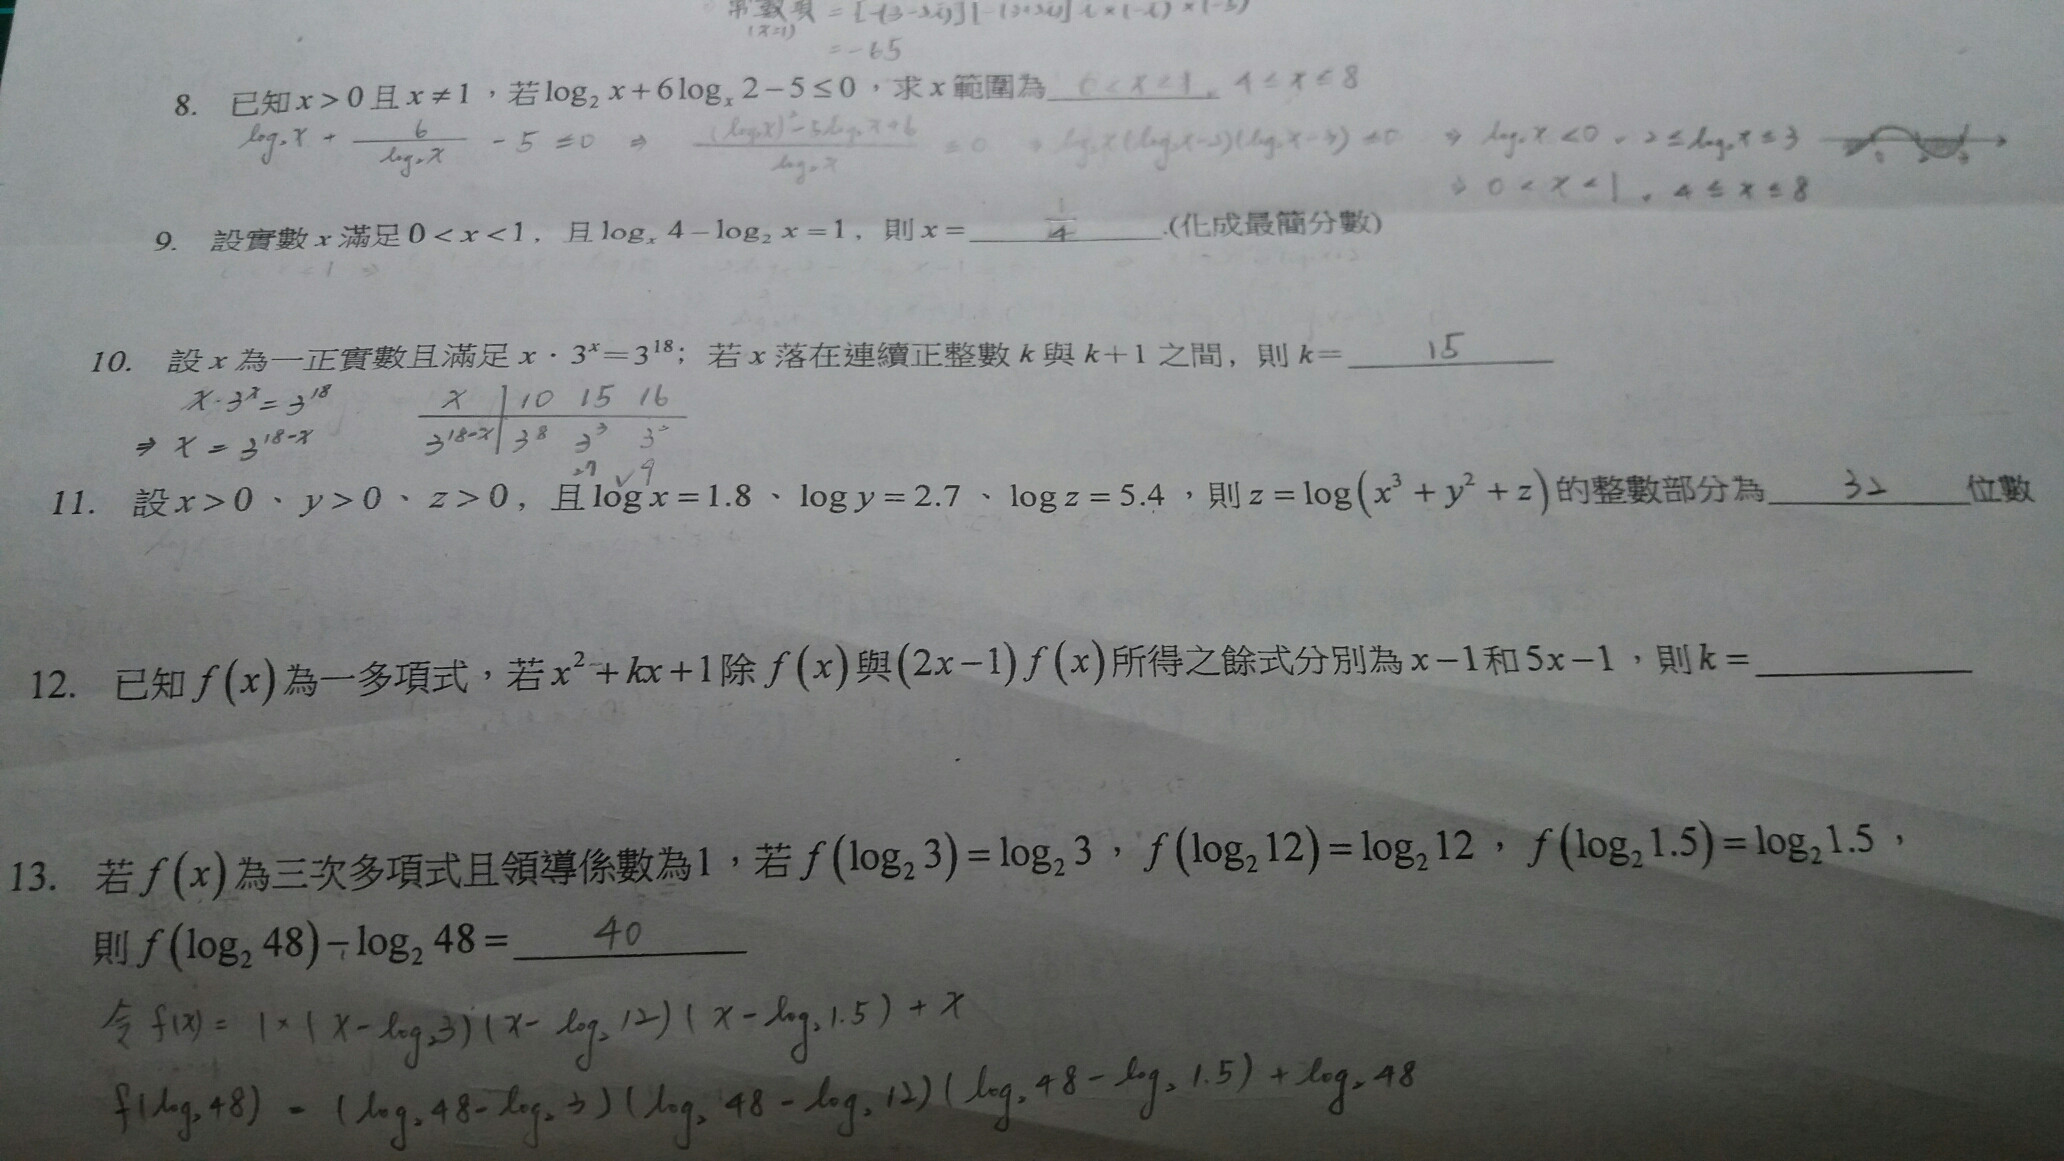 常數項 = [-(3-2i)][-(3+2i)] i×(-i)×(-5)
(x=1)
= -65
8. 已知 x > 0 且 x ≠ 1，若 log₂ x + 6 logₓ 2 − 5 ≤ 0，求 x 範圍為 0 < x < 1, 4 ≤ x ≤ 8
log₂x + 6/log₂x - 5 ≤ 0 ⇒ ((log₂x)² - 5log₂x + 6)/log₂x ≤ 0 ⇒ log₂x(log₂x-2)(log₂x-3) ≤ 0 ⇒ log₂x < 0, 2 ≤ log₂x ≤ 3
⇒ 0 < x < 1, 4 ≤ x ≤ 8
9. 設實數 x 滿足 0 < x < 1，且 logₓ 4 − log₂ x = 1，則 x = 1/4 .(化成最簡分數)
10. 設 x 為一正實數且滿足 x · 3ˣ = 3¹⁸；若 x 落在連續正整數 k 與 k+1 之間，則 k = 15
x·3ˣ = 3¹⁸
⇒ x = 3¹⁸⁻ˣ
x | 10 15 16
3¹⁸⁻ˣ | 3⁸ 3³ 3²
27 ✓9
11. 設 x > 0、y > 0、z > 0，且 log x = 1.8、log y = 2.7、log z = 5.4，則 z = log(x³ + y² + z) 的整數部分為 32 位數
12. 已知 f(x) 為一多項式，若 x² + kx + 1 除 f(x) 與 (2x−1) f(x) 所得之餘式分別為 x−1 和 5x−1，則 k =
13. 若 f(x) 為三次多項式且領導係數為1，若 f(log₂ 3) = log₂ 3，f(log₂ 12) = log₂ 12，f(log₂ 1.5) = log₂ 1.5，
則 f(log₂ 48) − log₂ 48 = 40
令 f(x) = 1×(x - log₂3)(x - log₂12)(x - log₂1.5) + x
f(log₂48) = (log₂48 - log₂3)(log₂48 - log₂12)(log₂48 - log₂1.5) + log₂48